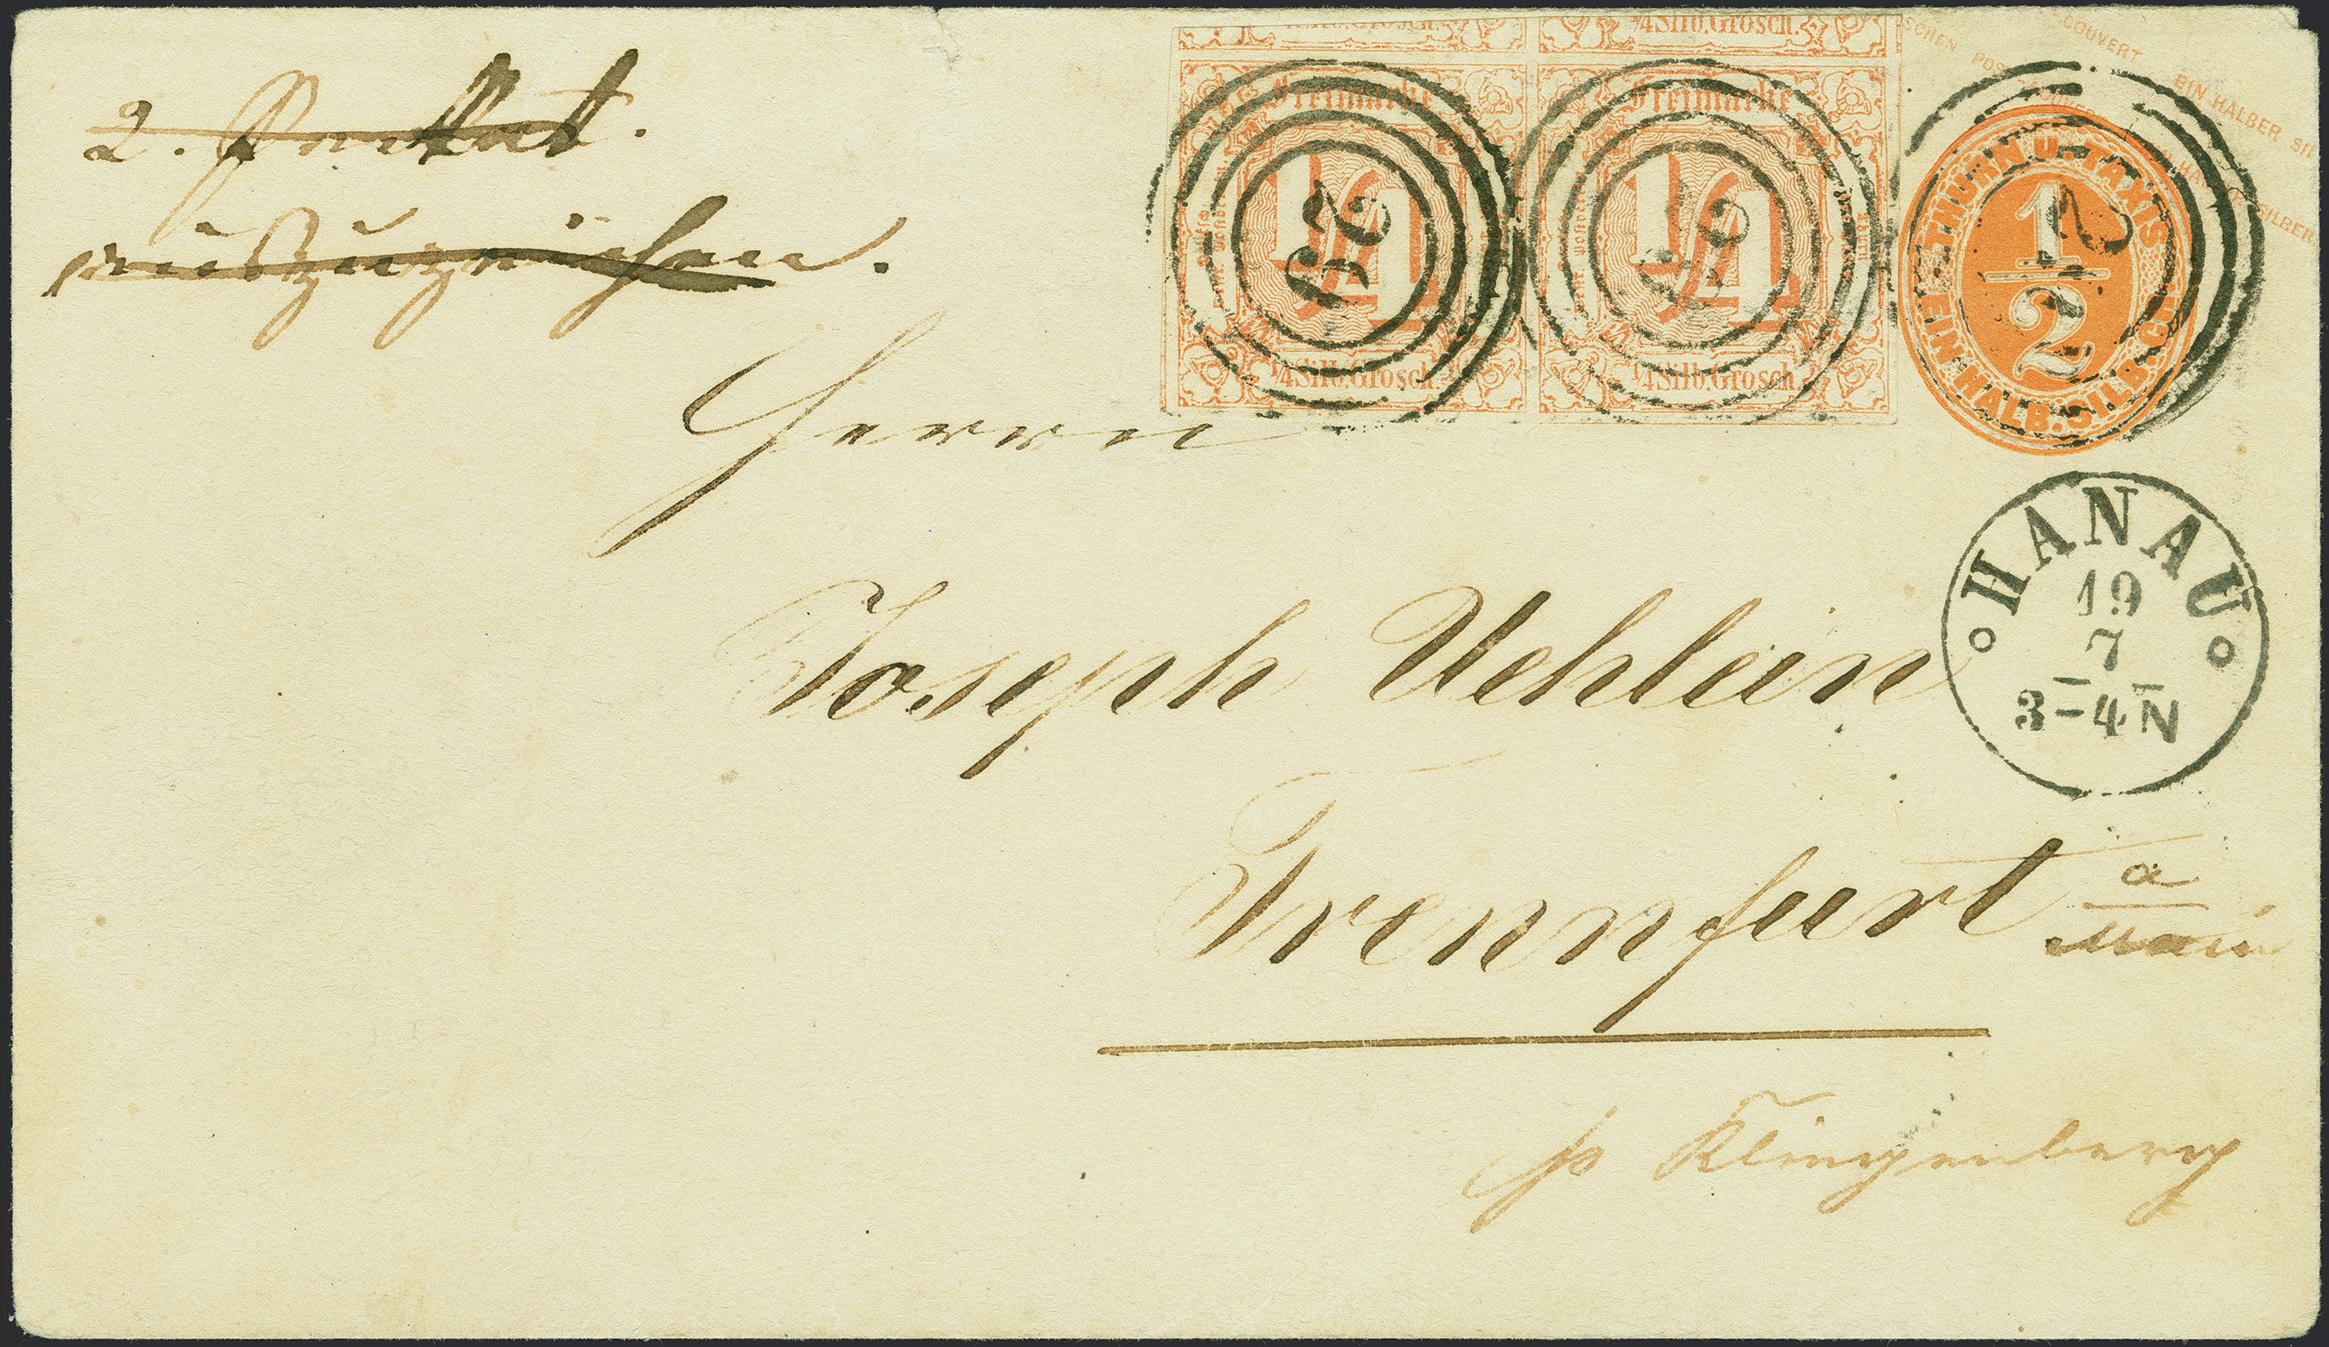 ¼ Silb. Grosch.
¼ Silb. Grosch.
SCHEN POST
COUVERT
EIN HALBER SIL
SILBER
Freimarke
1/4
¼ Silb. Grosch.
Freimarke
1/4
¼ Silb. Grosch.
THURN U. TAXIS
1/2
EIN HALB. SILB. GR
2.
auszuzeichen.
Herrn
Joseph Uehlein
HANAU
19
7
3-4 N
Trennfurt a
Main
p Klingenberg